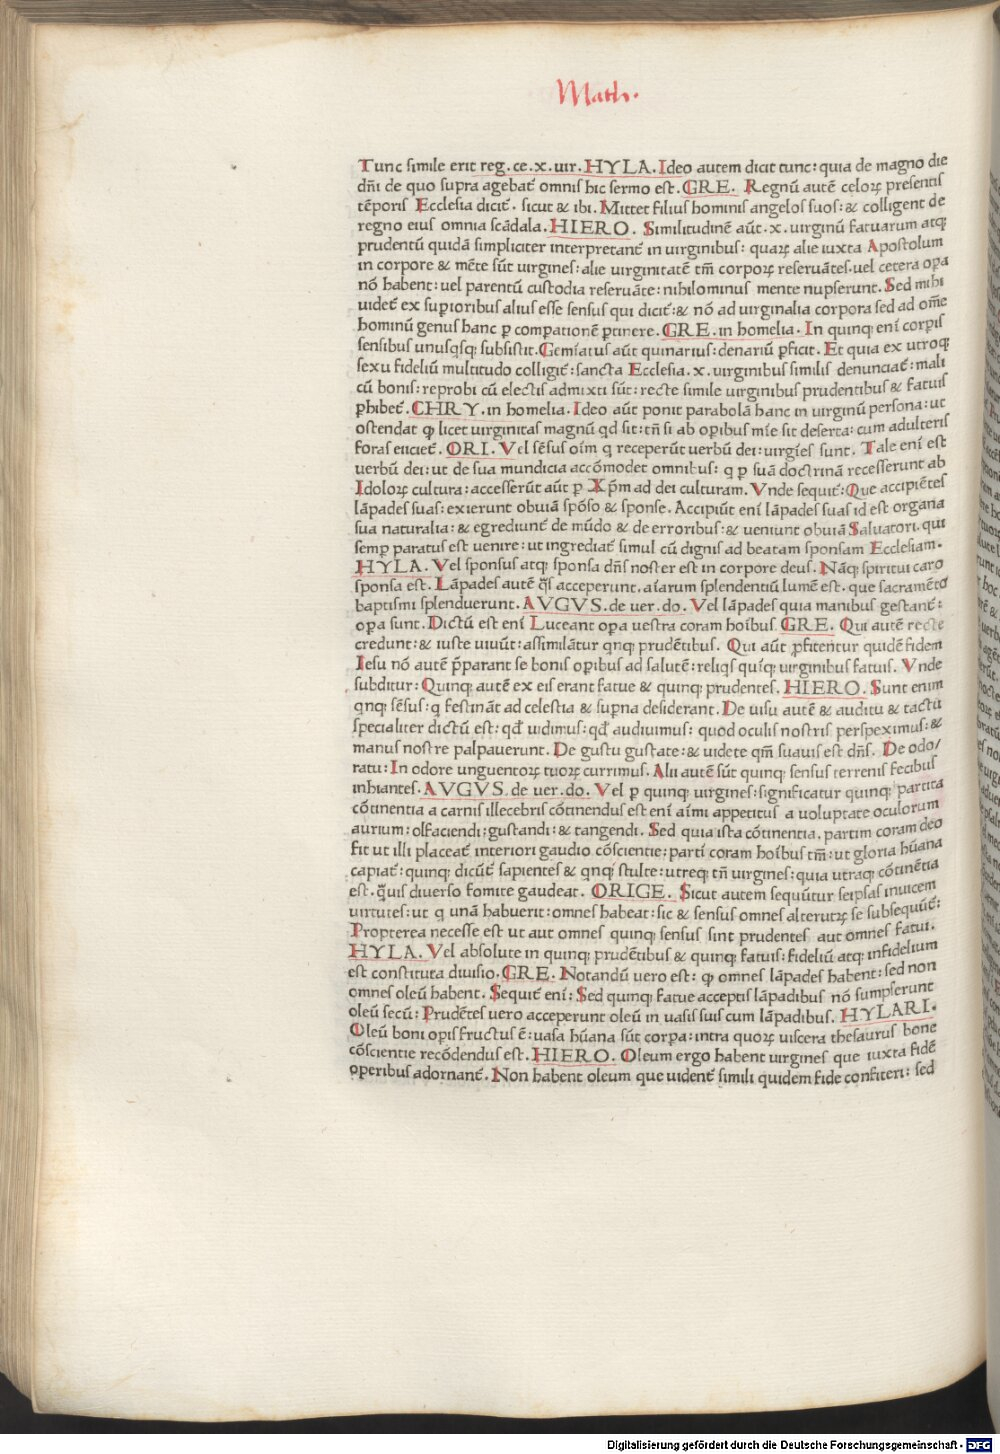 Math.
Tunc simile erit reg. ce. x. uir. HYLA. Ideo autem dicit tunc: quia de magno die
dñi de quo supra agebat̃ omnis hic sermo est. GRE. Regnũ autẽ celoꝝ presentis
tẽporis Ecclesia dicit̃. sicut & ibi. Mittet filius hominis angelos suos: & colligent de
regno eius omnia scãdala. HIERO. Similitudinẽ aũt. x. uirginũ fatuarum atq;
prudentũ quidã simpliciter interpretant̃ in uirginibus: quaꝝ alie iuxta Apostolum
in corpore & mẽte sũt uirgines: alie uirginitatẽ tm̃ corpoꝝ reseruãtes. uel cetera oꝑa
nõ habent: uel parentũ custodia reseruãte: nihilominus mente nupserunt. Sed mihi
uidet̃ ex suꝑioribus alius esse sensus qui dicit̃: & nõ ad uirginalia corpora sed ad om̃e
hominũ genus hanc ꝑ comꝑationẽ ꝑtinere. GRE. in homelia. In quinq; enĩ corꝑis
sensibus unusqsq; subsistit. Gemĩatus aũt quinarius: denariũ ꝑficit. Et quia ex utroq;
sexu fideliũ multitudo colligit̃: sancta Ecclesia. x. uirginibus similis denunciat̃: mali
cũ bonis: reprobi cũ electis admixti sũt: recte simile uirginibus prudentibus & fatuis
ꝑhibet̃. CHRY. in homelia. Ideo aũt ponit parabolã hanc in uirginũ persona: ut
ostendat ꝙ licet uirginitas magnũ qd sit: tñ si ab oꝑibus mĩe sit deserta: cum adulteris
foras eiiciet̃. ORI. Vel sẽsus oĩm q receperũt uerbũ dei: uirgĩes sunt. Tale enĩ est
uerbũ dei: ut de sua mundicia accõmodet omnibus: q ꝑ suã doctrinã recesserunt ab
Idoloꝝ cultura: accesserũt aũt ꝑ Xp̃m ad dei culturam. Vnde sequit̃: Que accipiẽtes
lãpades suas: exierunt obuiã spõso & sponse. Accipiũt enĩ lãpades suas id est organa
sua naturalia: & egrediunt̃ de mũdo & de erroribus: & ueniunt obuiã Saluatori. qui
semꝑ paratus est uenire: ut ingrediat̃ simul cũ dignis ad beatam sponsam Ecclesiam.
HYLA. Vel sponsus atq; sponsa dñs noster est in corpore deus. Nãq; spiritui caro
sponsa est. Lãpades autẽ q̃s acceperunt. aĩarum splendentiũ lumẽ est. que sacramẽto
baptismi splenduerunt. AVGVS. de uer. do. Vel lãpades quia manibus gestant̃:
oꝑa sunt. Dictũ est enĩ Luceant oꝑa uestra coram hoĩbus. GRE. Qui autẽ recte
credunt: & iuste uiuũt: assimilãtur qnq; prudẽtibus. Qui aũt ꝓfitentur quidẽ fidem
Iesu nõ autẽ p̃parant se bonis oꝑibus ad salutẽ: reliqs quĩq; uirginibus fatuis. Vnde
subditur: Quinq; autẽ ex eis erant fatue & quinq; prudentes. HIERO. Sunt enim
qnq; sẽsus: q festinãt ad celestia & suꝑna desiderant. De uisu autẽ & auditu & tactu
specialiter dictũ est: qd̃ uidimus: qd̃ audiuimus: quod oculis nostris perspeximus: &
manus nostre palpauerunt. De gustu gustate: & uidete qm̃ suauis est dñs. De odo/
ratu: In odore unguentoꝝ tuoꝝ currimus. Alii autẽ sũt quinq; sensus terrenis fecibus
inhiantes. AVGVS. de uer. do. Vel ꝑ quinq; uirgines: significatur quinq; partita
cõtinentia a carnis illecebris cõtinendus est enĩ aĩmi appetitus a uoluptate oculorum
aurium: olfaciendi: gustandi: & tangendi. Sed quia ista cõtinentia. partim coram deo
fit ut illi placeat̃ interiori gaudio cõscientie: partĩ coram hoĩbus tm̃: ut gloria hũana
capiat̃: quinq; dicũt̃ sapientes & qnq; stulte: utreq; tñ uirgines: quia utraq; cõtinẽtia
est. q̃uis diuerso fomite gaudeat. ORIGE. Sicut autem sequũtur seipsas inuicem
uirtutes: ut q unã habuerit: omnes habeat: sic & sensus omnes alterutꝝ se subsequũt̃:
Propterea necesse est ut aut omnes quinq; sensus sint prudentes aut omnes fatui.
HYLA. Vel absolute in quinq; prudẽtibus & quinq; fatuis: fideliũ atq; infidelium
est constituta diuisio. GRE. Notandũ uero est: ꝙ omnes lãpades habent: sed non
omnes oleũ habent. Sequit̃ enĩ: Sed quinq; fatue acceptis lãpadibus nõ sumpserunt
oleũ secũ: Prudẽtes uero acceperunt oleũ in uasis suis cum lãpadibus. HYLARI.
Oleũ boni oꝑis fructus ẽ: uasa hũana sũt corꝑa: intra quoꝝ uiscera thesaurus bone
cõscientie recõdendus est. HIERO. Oleum ergo habent uirgines que iuxta fidẽ
operibus adornant̃. Non habent oleum que uident̃ simili quidem fide confiteri: sed
Digitalisierung gefördert durch die Deutsche Forschungsgemeinschaft - DFG